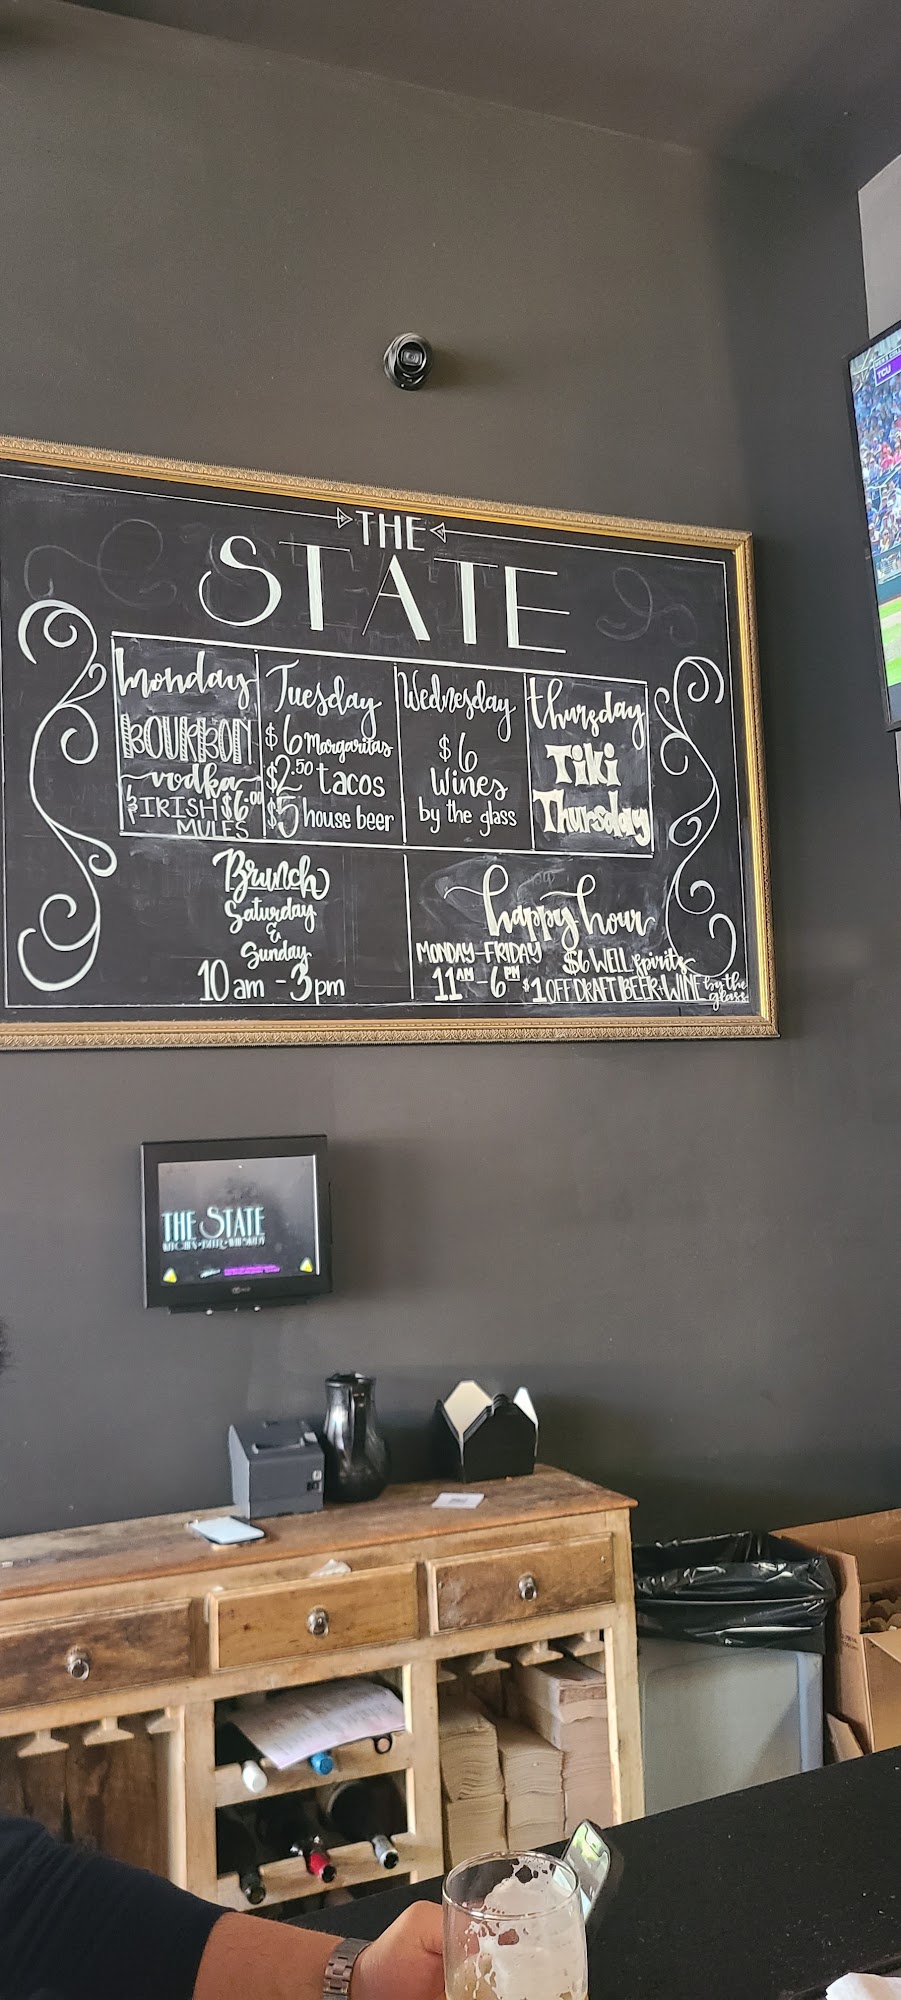 TCU
THE
STATE
Monday
BOURBON
vodka
& IRISH $6.00
MULES
Tuesday
$6 Margaritas
$2.50 tacos
$5 house beer
Wednesday
$6
Wines
by the glass
Thursday
Tiki
Thursday
Brunch
Saturday
&
Sunday
10 am - 3 pm
happy hour
MONDAY - FRIDAY
11 AM - 6 PM
$6 WELL spirits
$1 OFF DRAFT BEER + WINE by the
glass
THE STATE
KITCHEN • BEER • WHISKEY